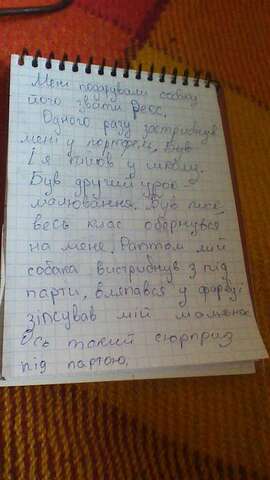 Мені подарували собаку
його звати Рекс.
Одного разу застрибнув
мені у портфель. Був
І я пішов у школу.
Був другий урок
малювання. Був писк,
весь клас обернувся
на мене. Раптом мій
собака вистрибнув з під
парти, вляпався у фарбу і
зіпсував мій малюнок
Ось такий сюрприз
під партою.